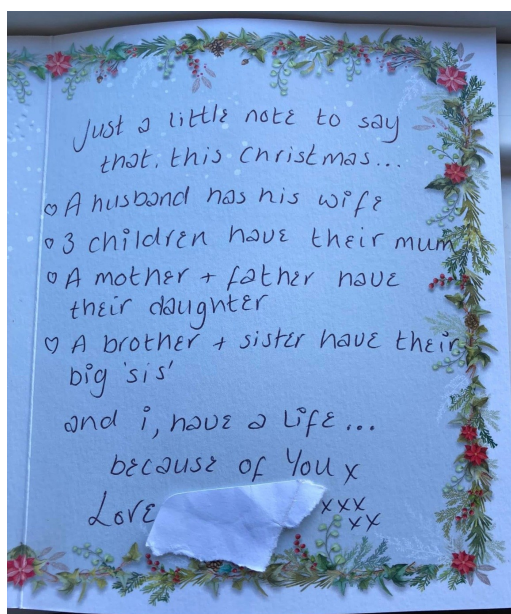 Just a little note to say
that, this Christmas...
♡ A husband has his wife
♡ 3 children have their mum
♡ A mother + father have
their daughter
♡ A brother + sister have their
big 'sis'
and i, have a life...
because of you x
Love xxx
xx